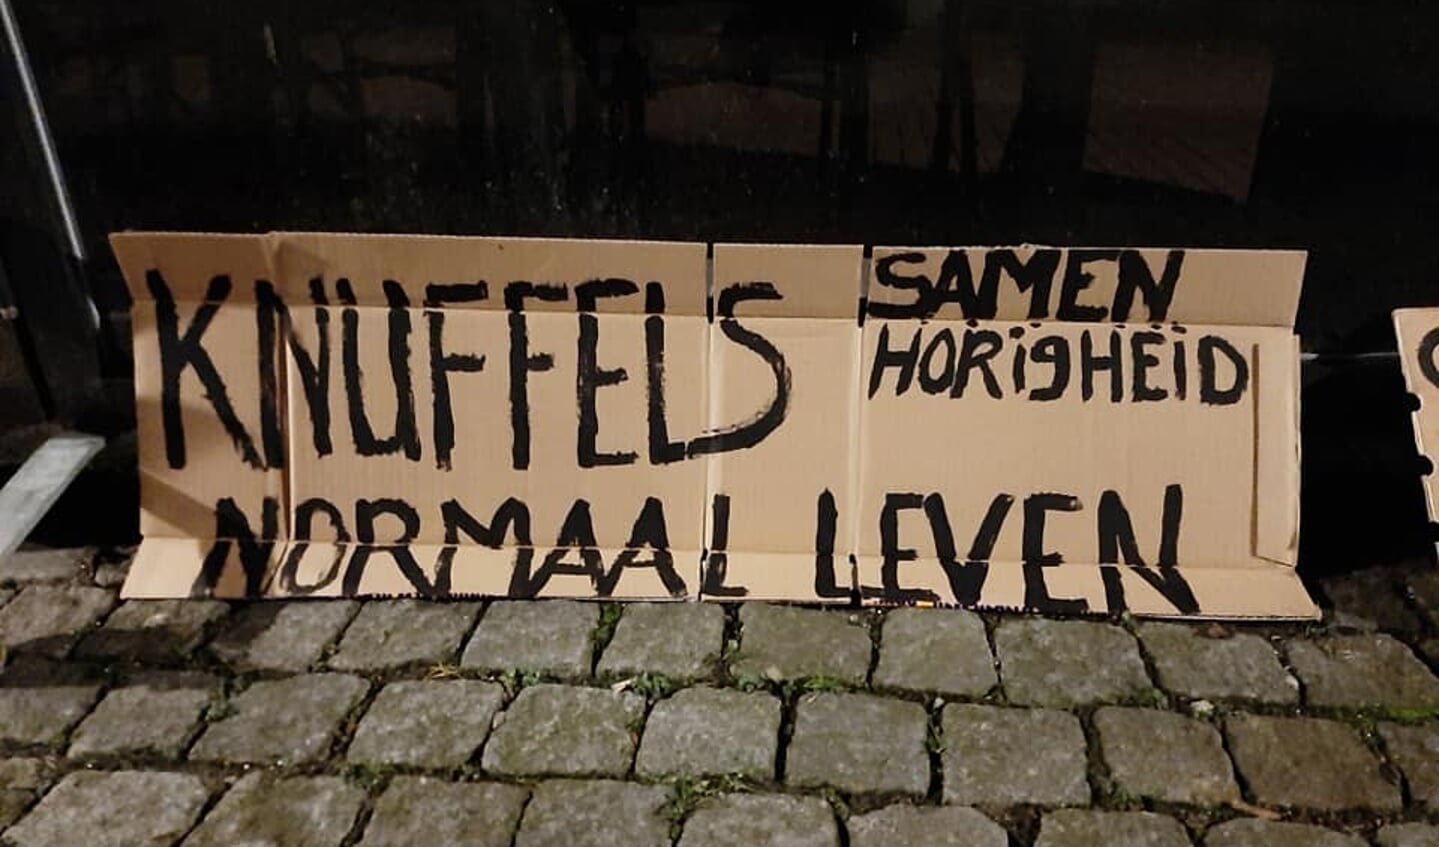 KNUFFELS
SAMEN
HORigHEiD
NORMAAL LEVEN